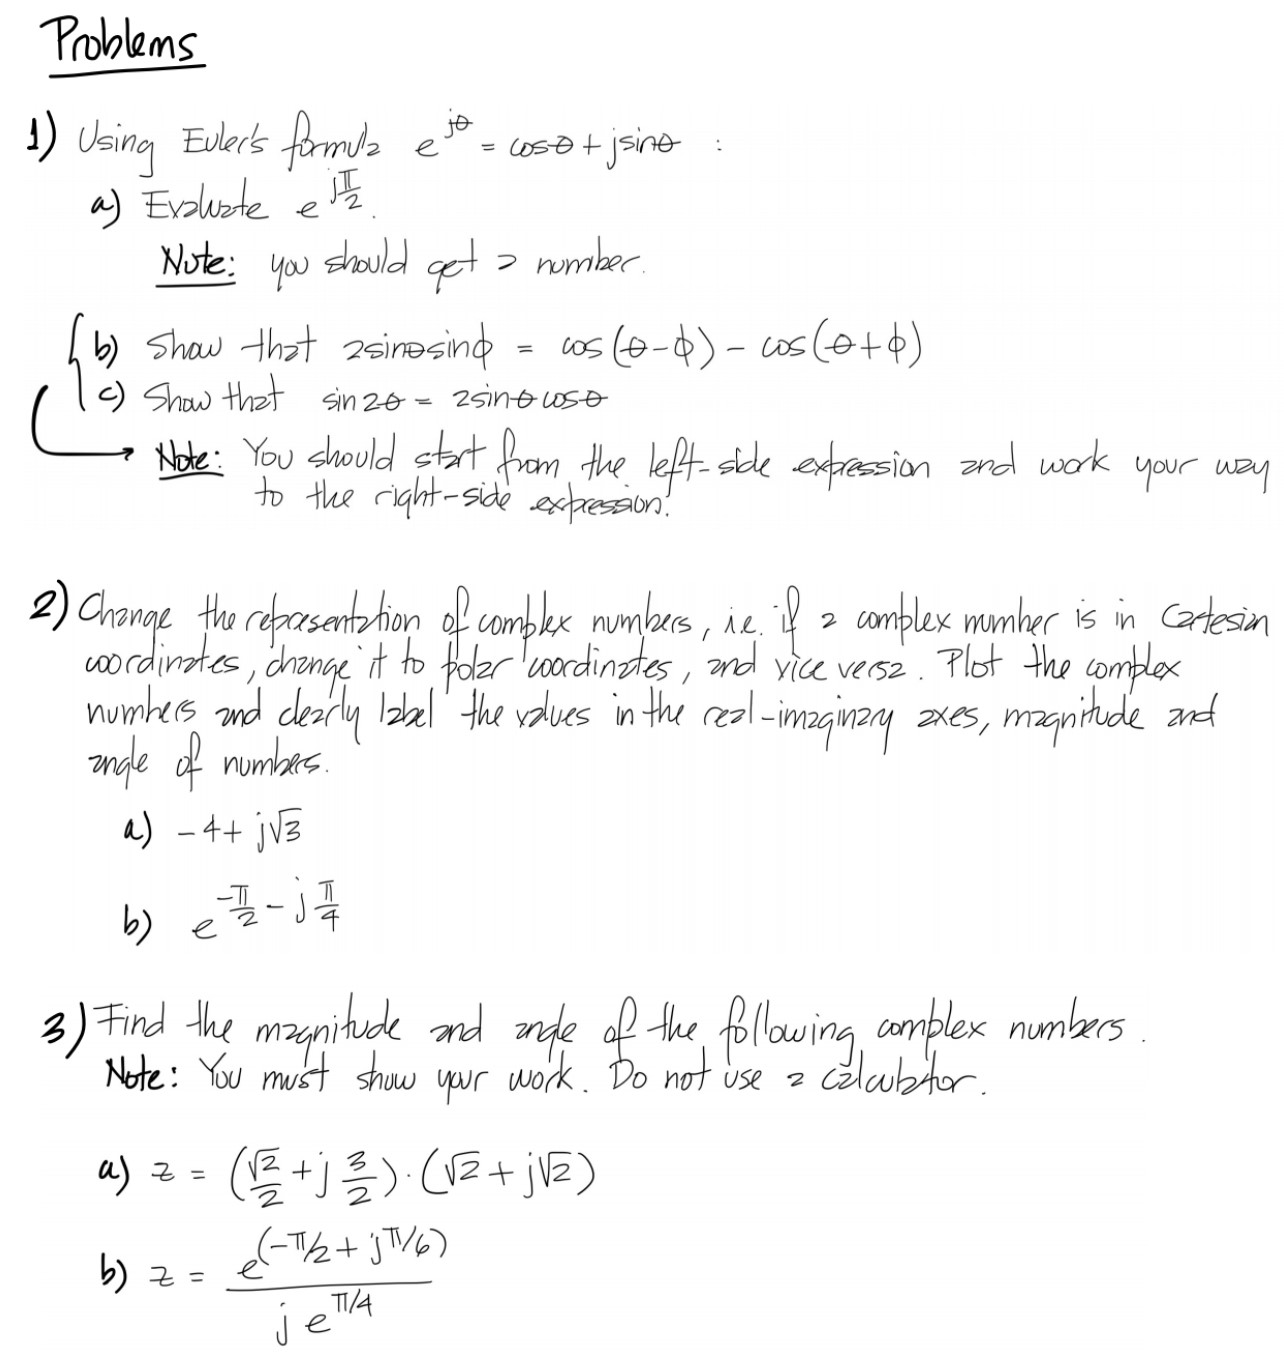 Problems
1) Using Euler's formula e^{jθ} = cosθ + jsinθ :
a) Evaluate e^{jπ/2}.
Note: you should get a number.
b) Show that 2sinθsinϕ = cos(θ-ϕ) - cos(θ+ϕ)
c) Show that sin2θ = 2sinθcosθ
Note: You should start from the left-side expression and work your way
to the right-side expression!
2) Change the representation of complex numbers, i.e. if a complex number is in Cartesian
coordinates, change it to polar coordinates, and vice versa. Plot the complex
numbers and clearly label the values in the real-imaginary axes, magnitude and
angle of numbers.
a) -4 + j√3
b) e^{-π/2 - jπ/4}
3) Find the magnitude and angle of the following complex numbers.
Note: You must show your work. Do not use a calculator.
a) z = (√2/2 + j 3/2) · (√2 + j√2)
b) z = e^{(-π/2 + jπ/6)} / j e^{π/4}